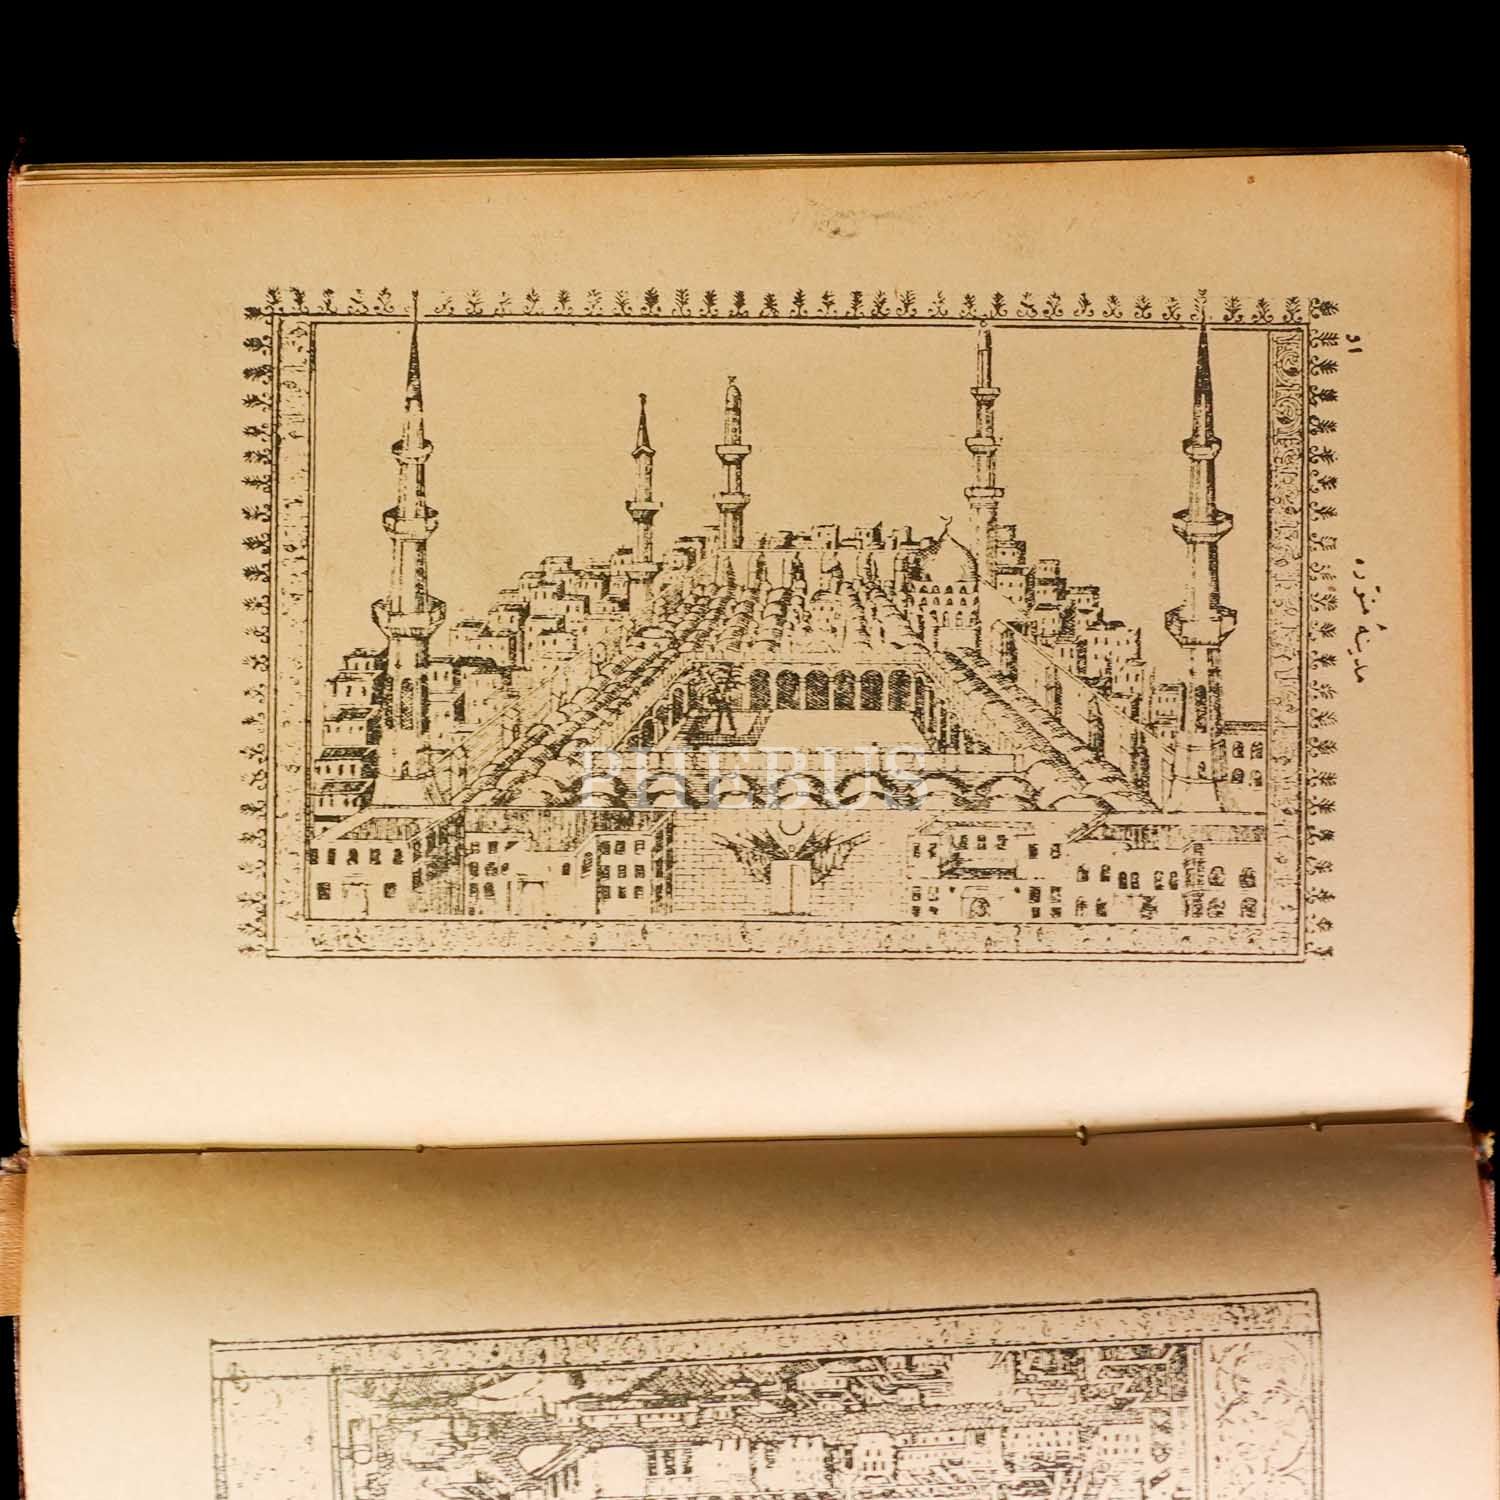 مدینهٔ منوّره
PHEBUS